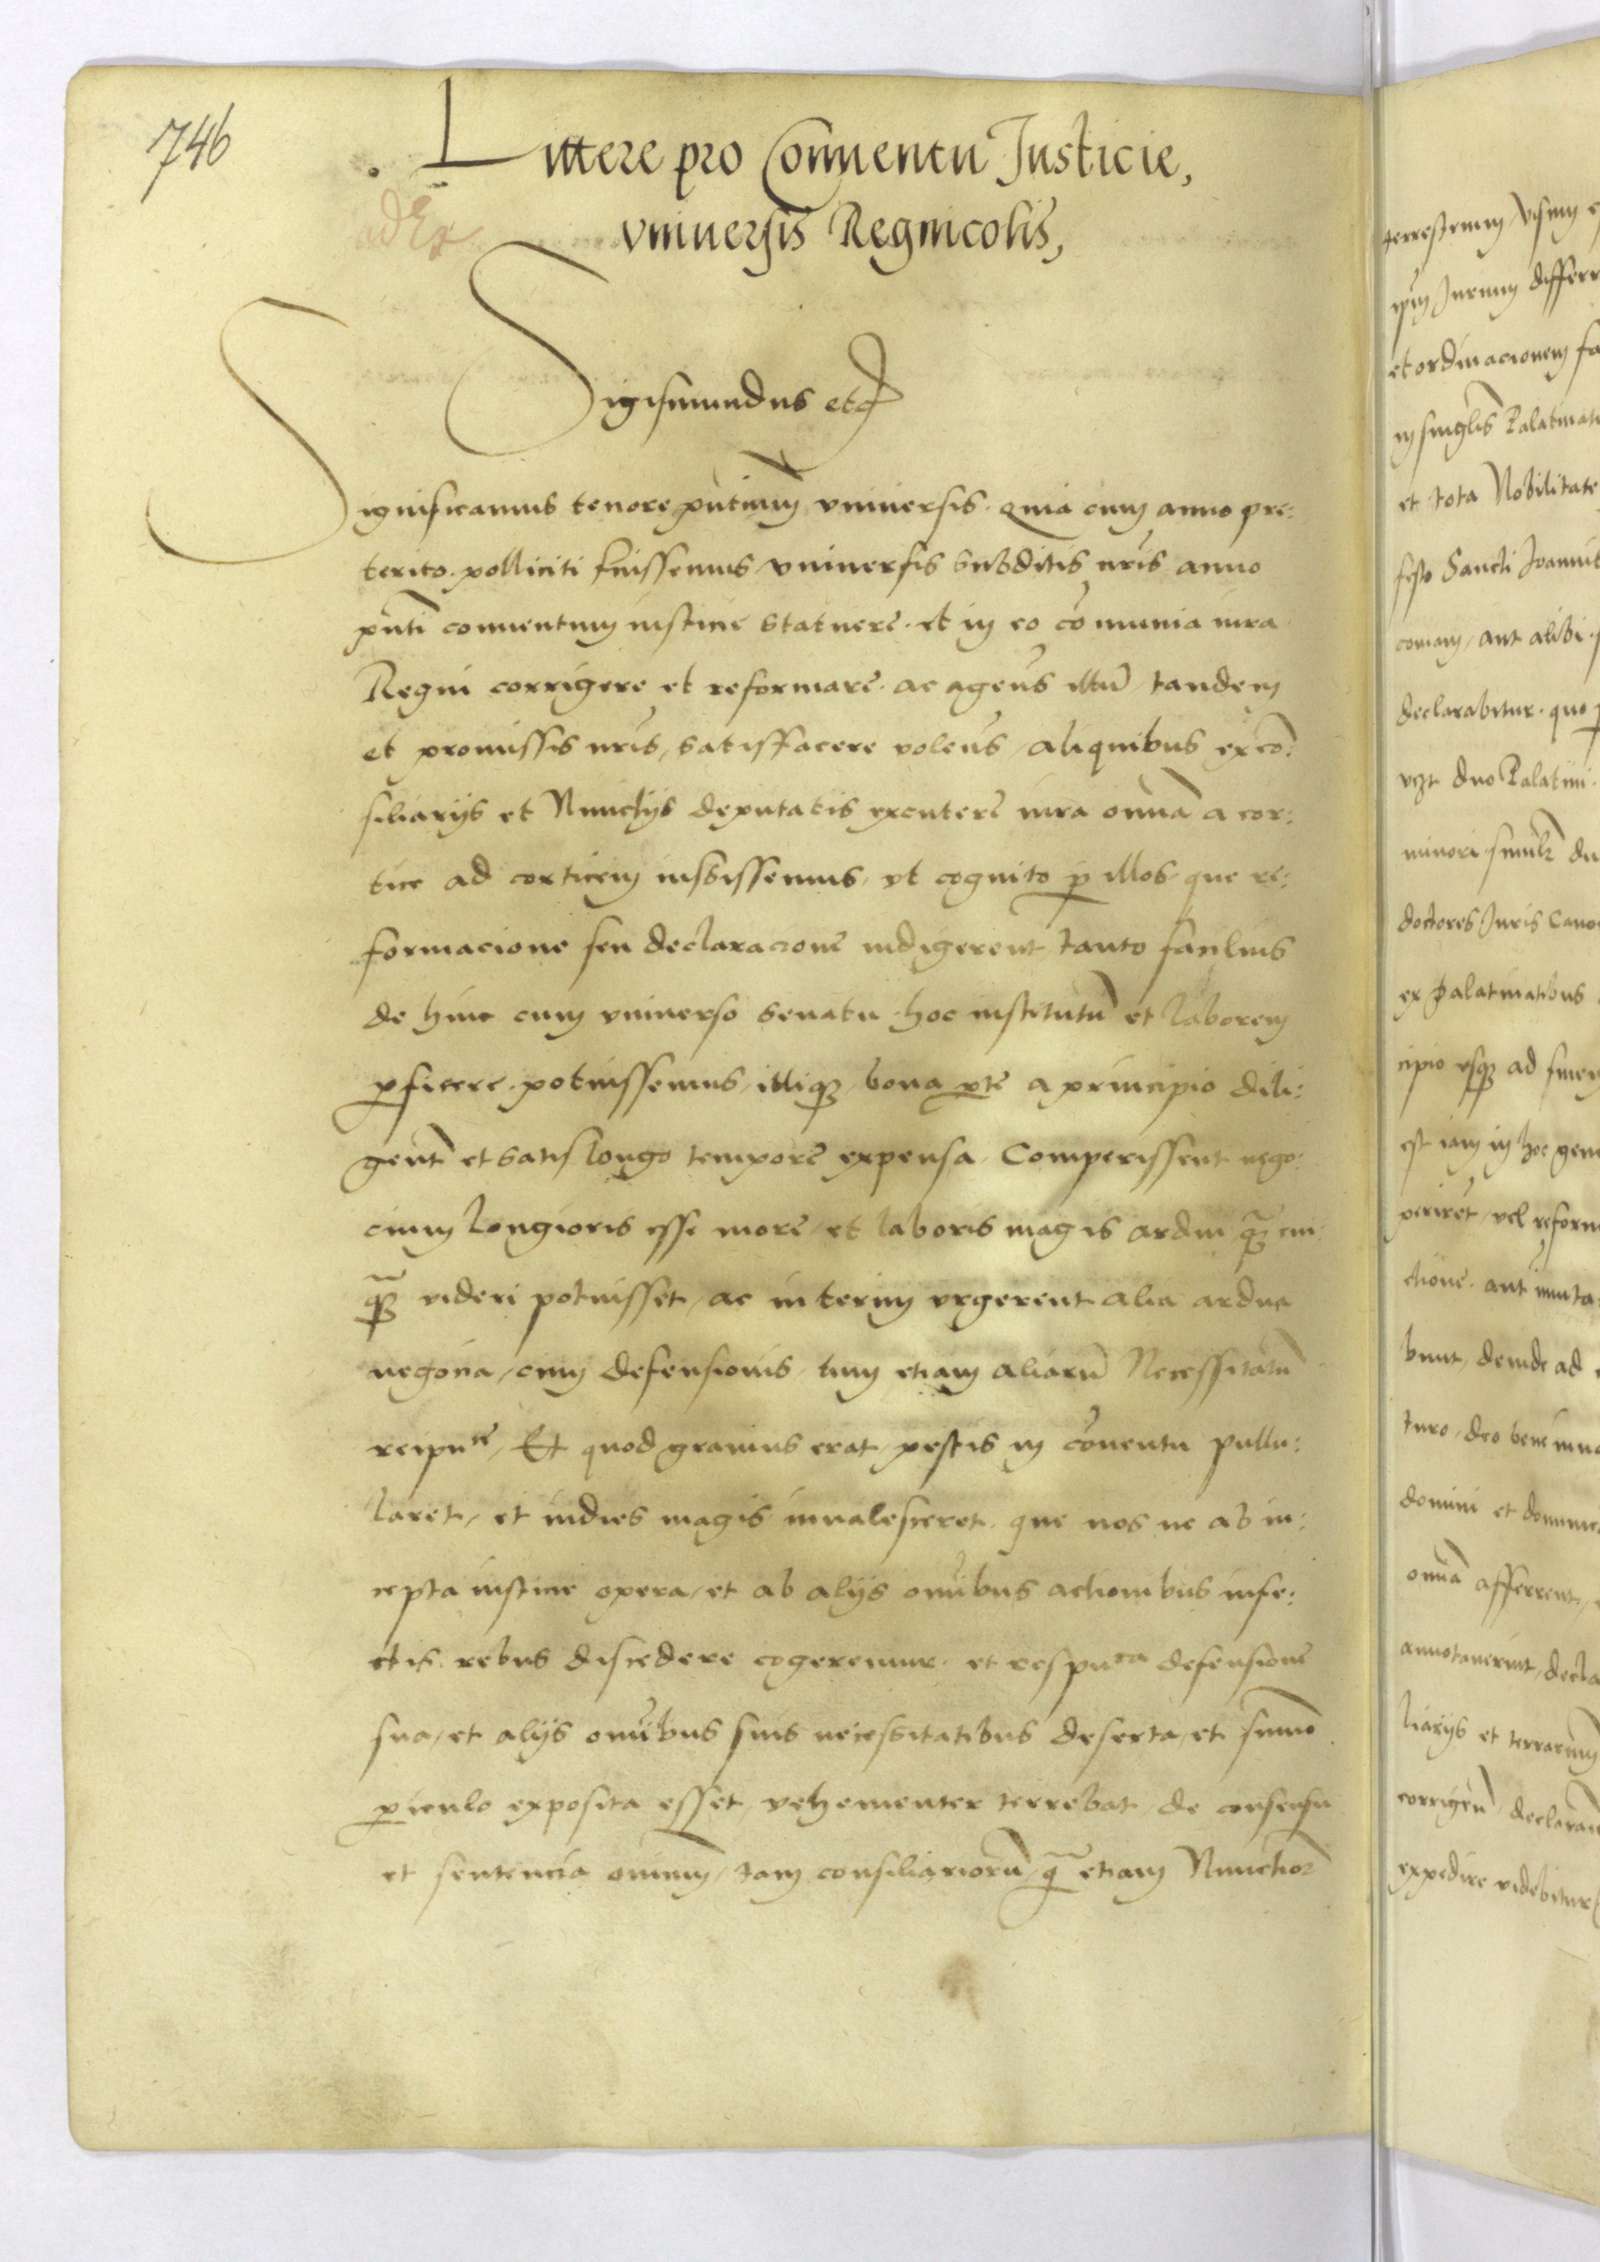 746
Littere pro Conuentu Justicie,
vniuersis Regnicolis,
Sigismundus etc
Significamus tenore pñtium vniuersis. Quia cum anno pre:
terito. polliciti fuissemus vniuersis subditis nris anno
pñti conuentum iusticie statuere. et in eo cõmunia iura
Regni corrigere et reformare. ac agens illud tandem
et promissis nris, satisffacere volens, aliquibus ex cõ:
siliarijs et Nunctijs deputatis excutere iura omnia a cor:
tice ad corticem iussissemus, vt cognito p illos que re:
formacione seu declaracione indigerent tanto facilius
de hinc cum vniuerso senatu hoc institutũ et laborem
pficere. potuissemus, illiqz bona pte a principio dili:
gent et satis longo tempore expensa. Comperissent nego:
cium longioris esse more, et laboris magis ardui qz cui:
qz videri potuisset, ac interim vrgerent alia ardua
negocia, cum defensionis, tum etiam aliarũ Necessitatũ
reipuce, Et quod grauius erat, pestis in cõuentu pullu:
laret, et indies magis inualesceret. que nos ne ab in:
cepta iusticie opera, et ab alijs omibus actionibus infe:
ctis. rebus discedere cogeremur. et respuca defensione
sua, et alijs omibus suis necessitatibus deserta, et summo
piculo exposita esset, vehementer terrebat, de consensu
et sentencia omnium, tam consiliariorũ, q etiam Nunctior
terrestrium
Jurium differr
et ordinacionem fa
in singlis Palatinati
et tota Nobilitate
festo Sancti Joannis
aut alibi.
declarabitur. quo p
vzt duo Palatini.
minori. simulr du
doctores Juris Cano
ex palatinatibus
cipio vsqz ad finem
est iam in hoc gen
periret, vel reform
ctione. aut imuta
bunt, deinde ad
turo, deo bene iuua
domini et
omnia afferrent,
annotauerint, decla
liarijs et terrarum
corrigen declaran
expedire videbitur